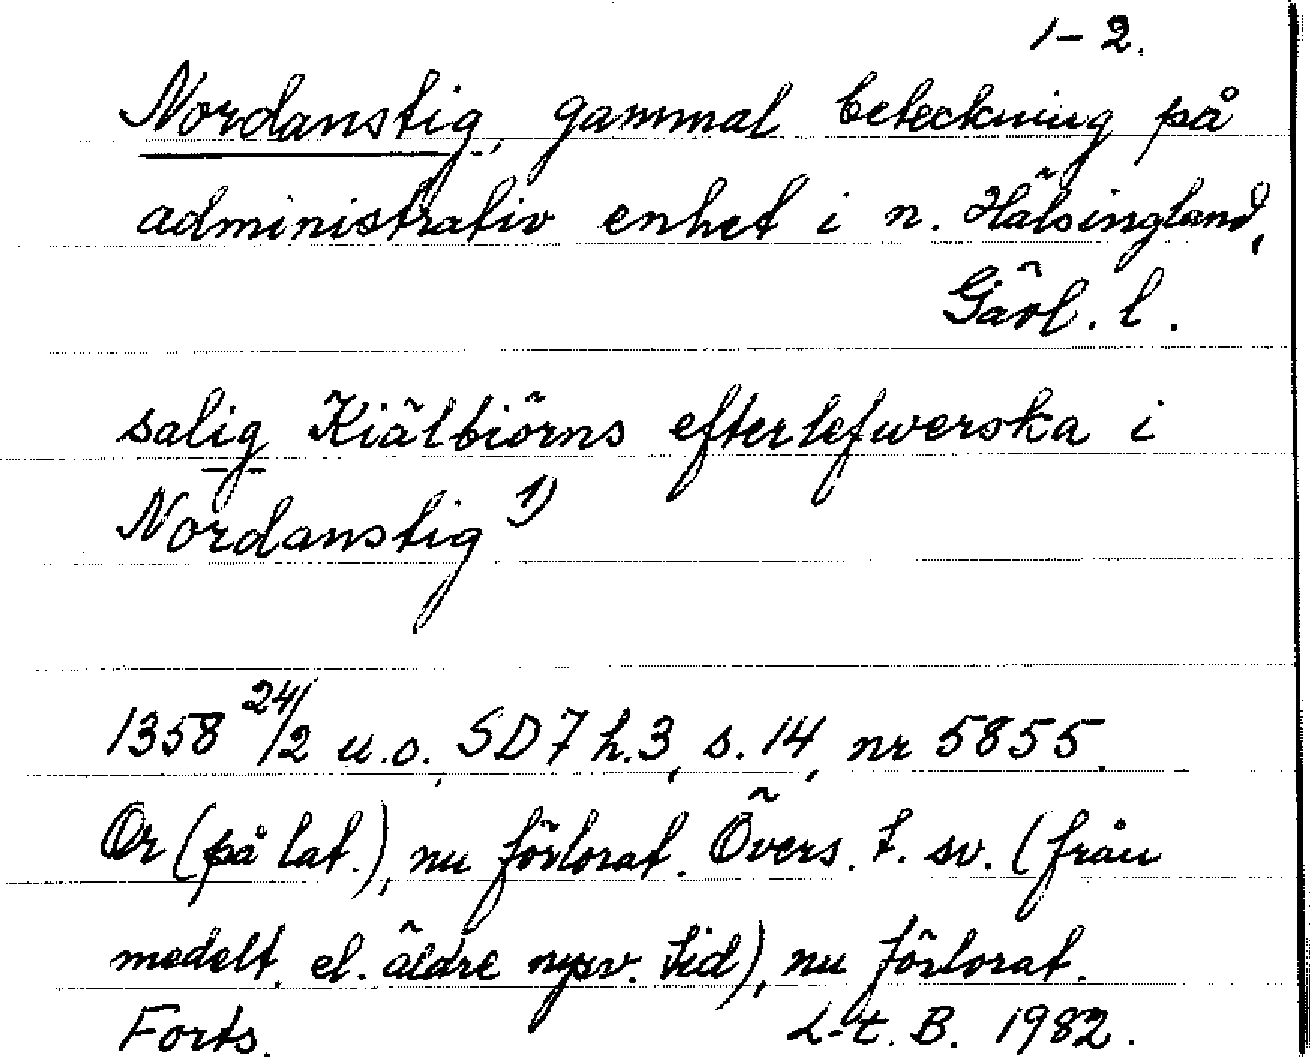 1-2.
Nordanstig, gammal beteckning på
administrativ enhet i n. Hälsingland,
Gävl. l.
salig Kiälbiörns efterlefwerska i
Nordanstig 1)
1358 24/2 u.o., SD 7 h.3, s. 14, nr 5855.
Or (på lat.), nu förlorat. Övers. t. sv. (från
medelt. el. äldre nysv. tid), nu förlorat.
Forts. L-t. B. 1982.